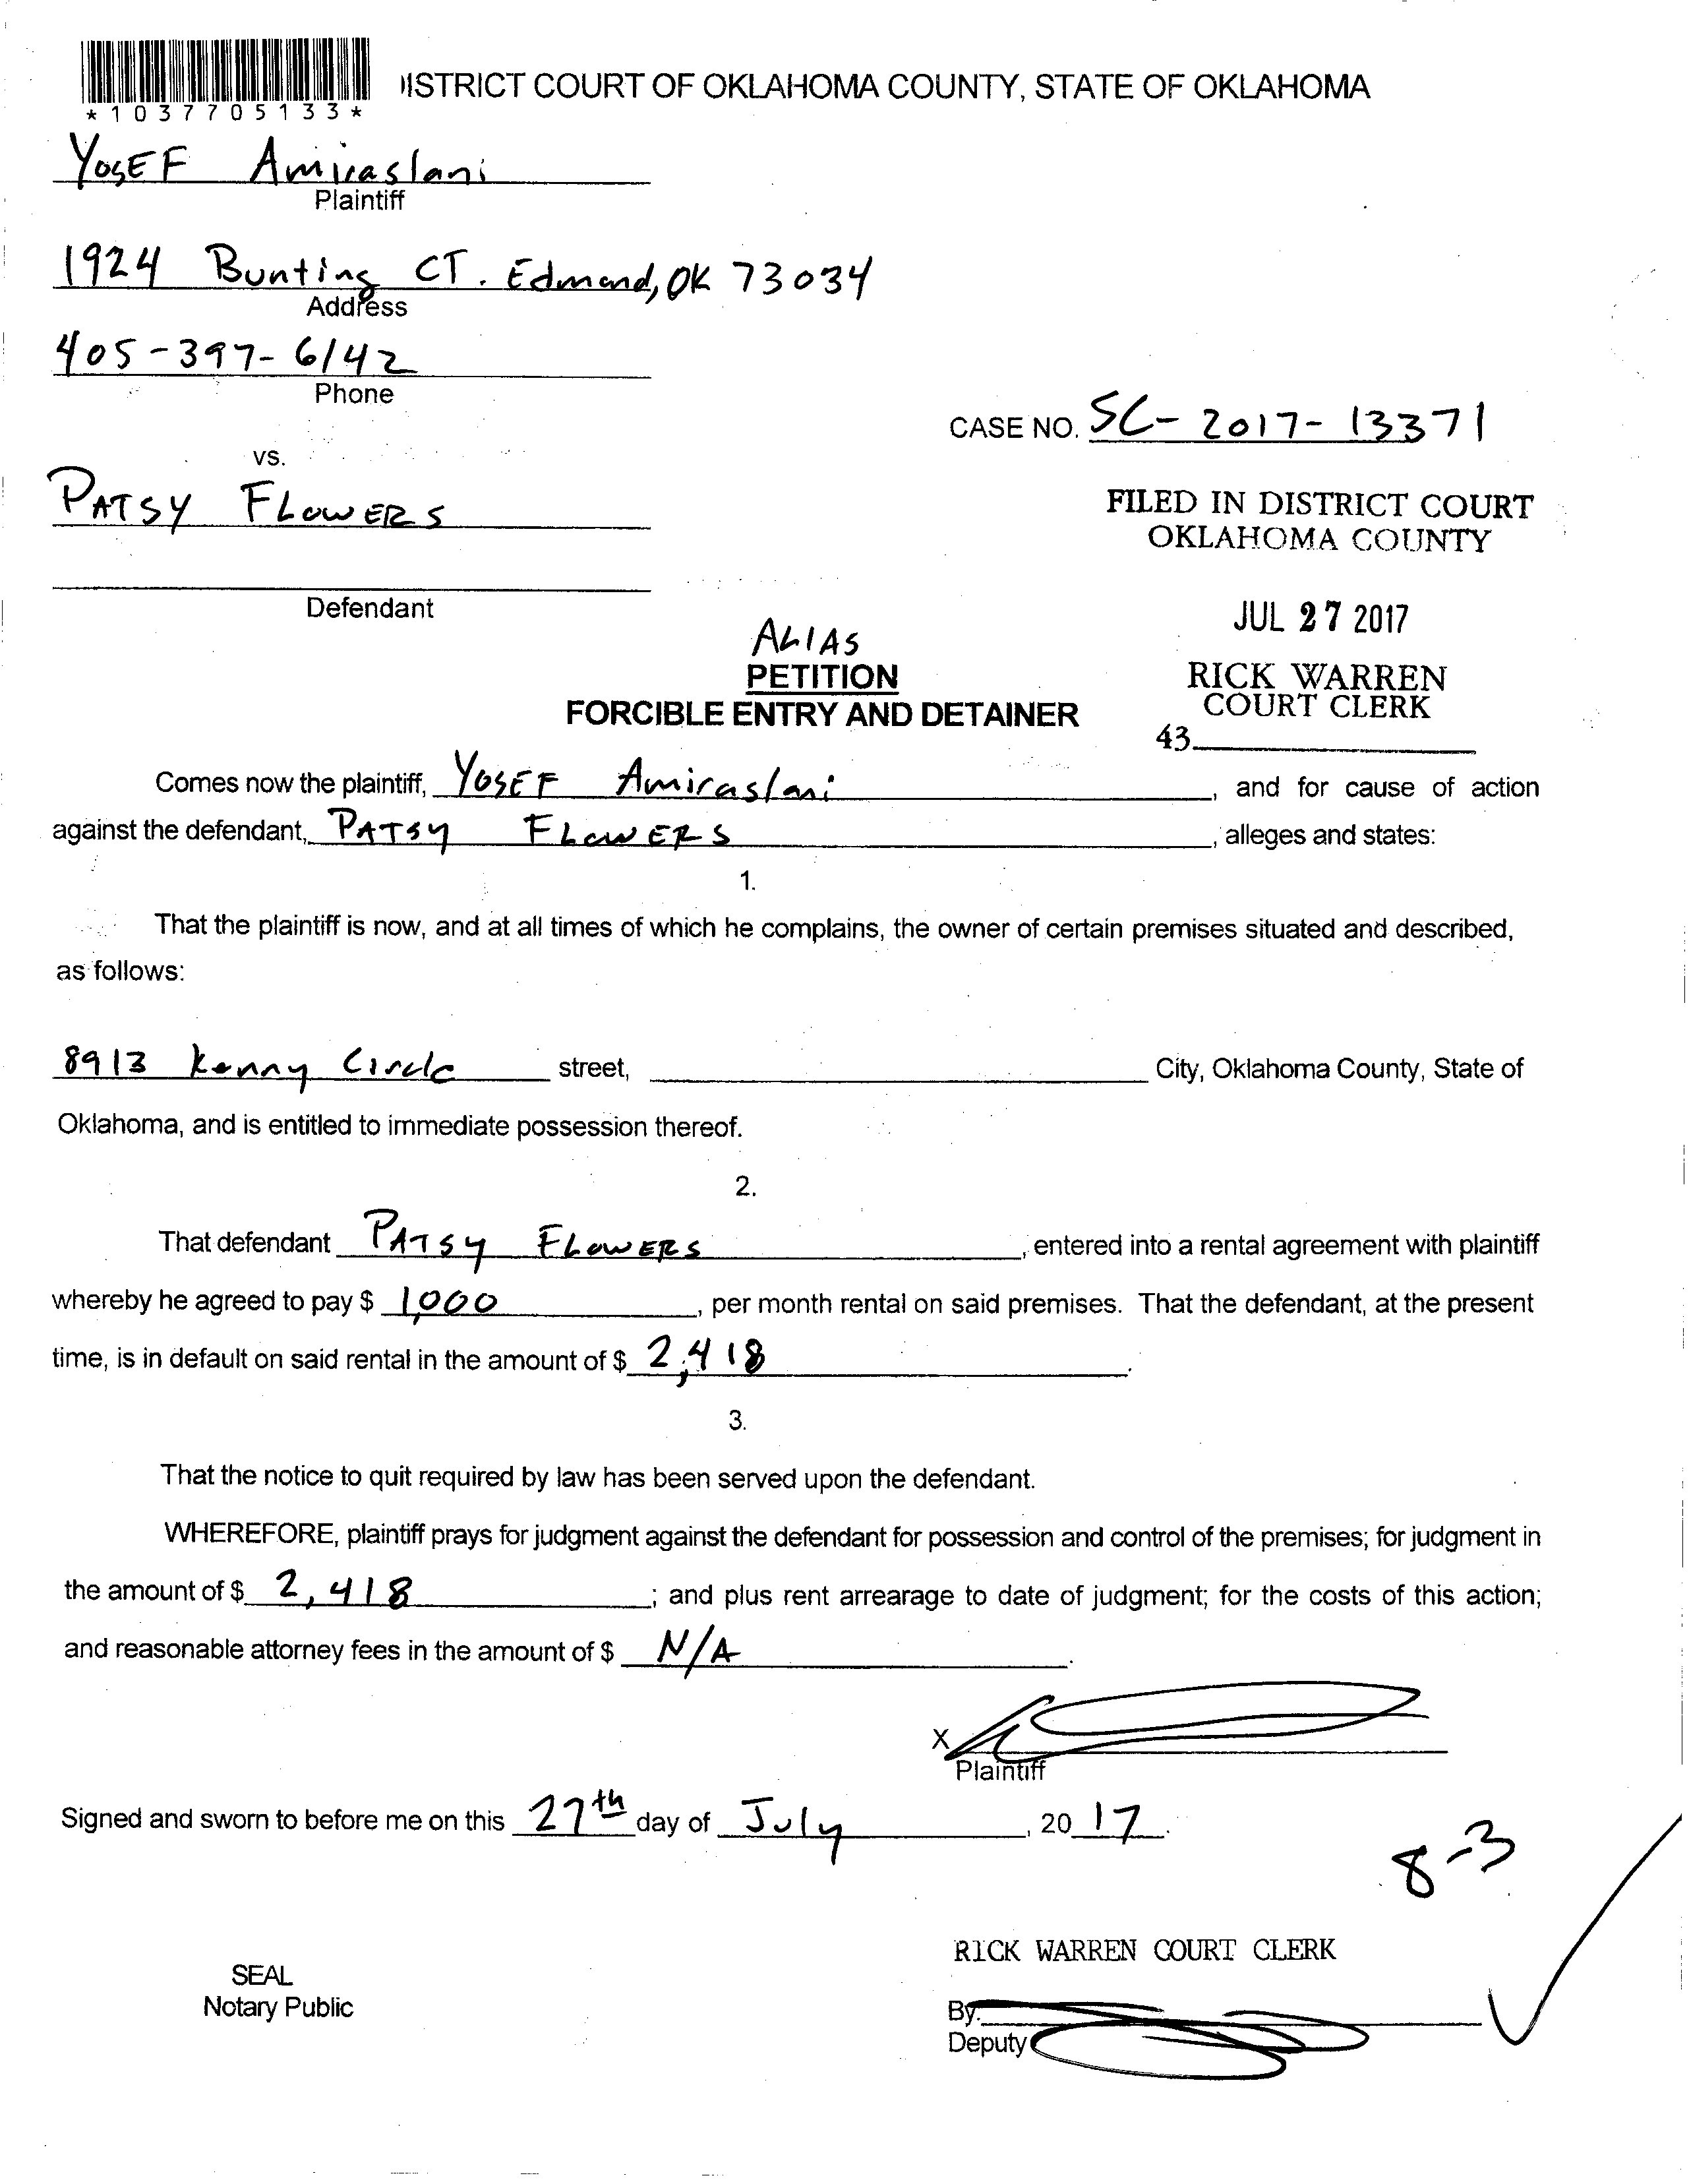 ISTRICT COURT OF OKLAHOMA COUNTY, STATE OF OKLAHOMA
*1037705133*
YOSEF Amiraslani
Plaintiff
1924 Bunting CT. Edmond, OK 73034
Address
405-397-6142
Phone
CASE NO. SC-2017-13371
vs.
PATSY FLOWERS
FILED IN DISTRICT COURT
OKLAHOMA COUNTY
Defendant
JUL 27 2017
ALIAS
PETITION
RICK WARREN
COURT CLERK
FORCIBLE ENTRY AND DETAINER
43
Comes now the plaintiff, YOSEF Amiraslani, and for cause of action
against the defendant, PATSY FLOWERS, alleges and states:
1.
That the plaintiff is now, and at all times of which he complains, the owner of certain premises situated and described,
as follows:
8913 Kenny Circle street, City, Oklahoma County, State of
Oklahoma, and is entitled to immediate possession thereof.
2.
That defendant PATSY FLOWERS, entered into a rental agreement with plaintiff
whereby he agreed to pay $ 1,000, per month rental on said premises. That the defendant, at the present
time, is in default on said rental in the amount of $ 2,418.
3.
That the notice to quit required by law has been served upon the defendant.
WHEREFORE, plaintiff prays for judgment against the defendant for possession and control of the premises; for judgment in
the amount of $ 2,418; and plus rent arrearage to date of judgment; for the costs of this action;
and reasonable attorney fees in the amount of $ N/A.
X
Plaintiff
Signed and sworn to before me on this 27th day of July, 2017.
8-3
RICK WARREN COURT CLERK
SEAL
Notary Public
By:
Deputy